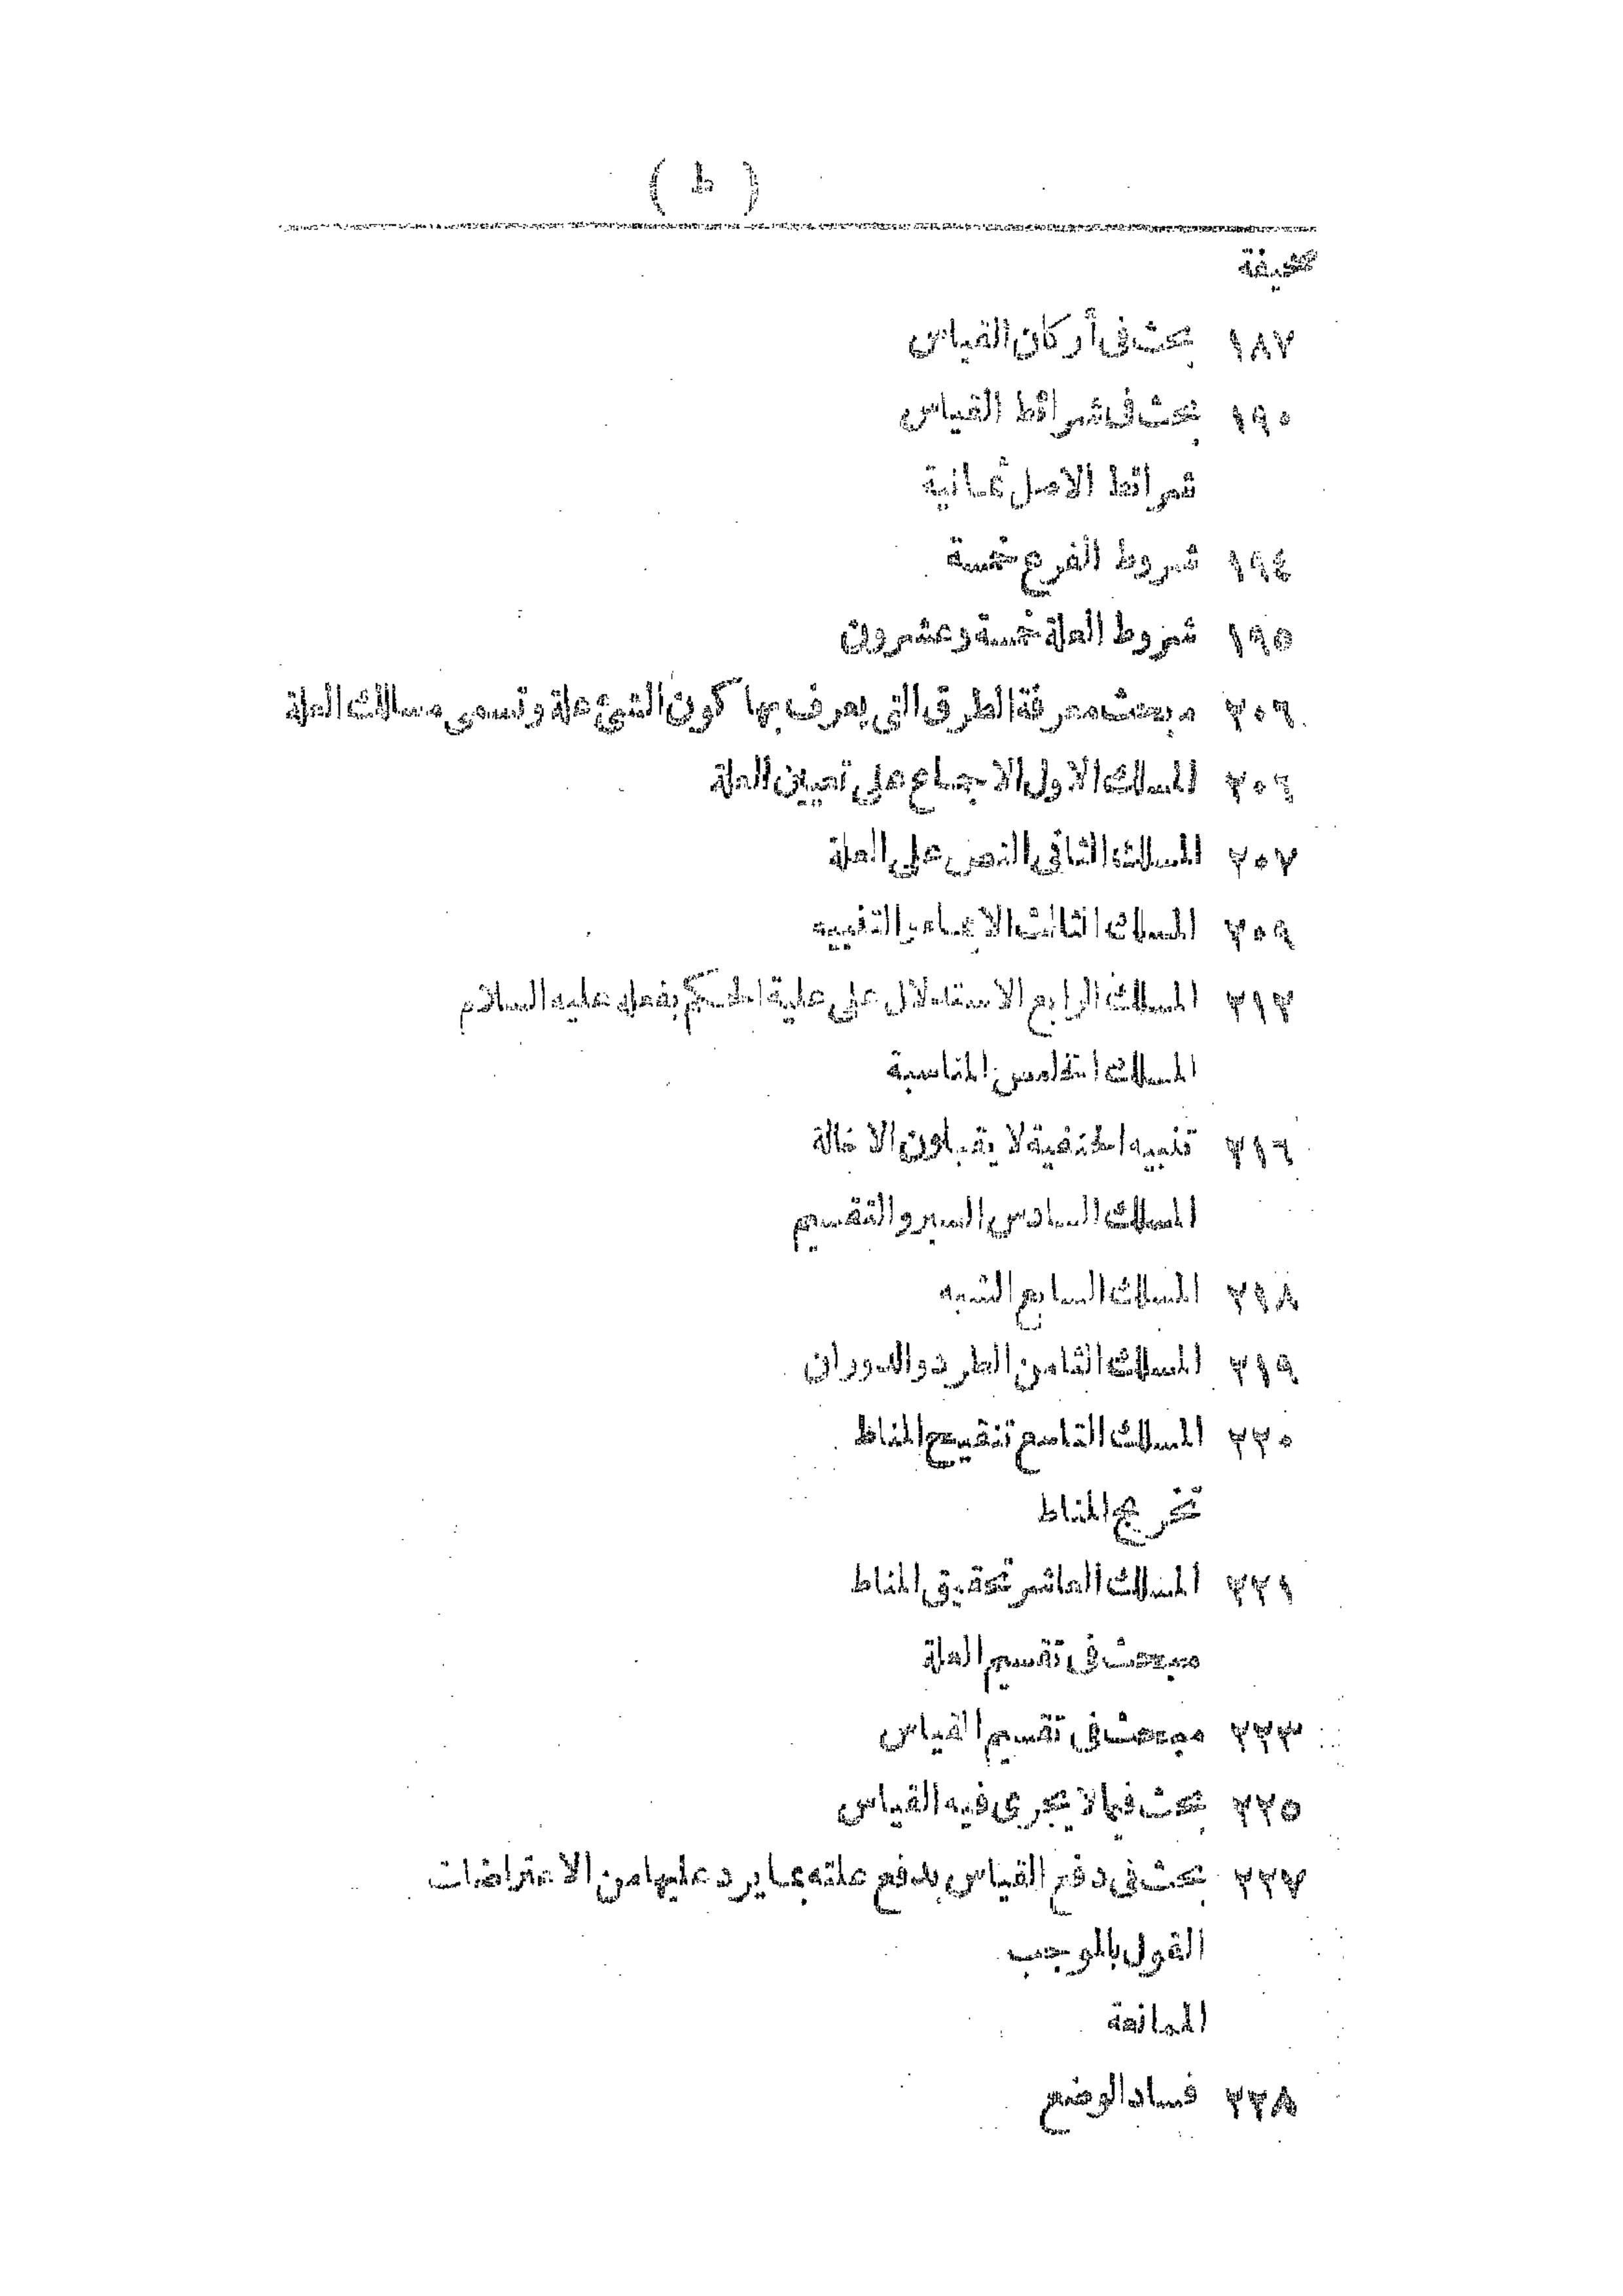 ( ط )
صحيفة
١٨٧ بحث فى أركان القياس
١٩٠ بحث فى شرائط القياس
شرائط الاصل ثمانية
١٩٤ شروط الفرع خمسة
١٩٥ شروط العلة خمسة وعشرون
٢٠٦ مبحث معرفة الطرق التى يعرف بها كون الشئ علة وتسمى مسالك العلة
٢٠٦ المسلك الاول الاجماع على تعيين العلة
٢٠٧ المسلك الثانى النص على العلة
٢٠٩ المسلك الثالث الايماء والتنبيه
٢١٢ المسلك الرابع الاستدلال على علية الحكم بفعله عليه السلام
المسلك الخامس المناسبة
٢١٦ تنبيه الحنفية لا يقبلون الاخالة
المسلك السادس السبر والتقسيم
٢١٨ المسلك السابع الشبه
٢١٩ المسلك الثامن الطرد والدوران
٢٢٠ المسلك التاسع تنقيح المناط
تخريج المناط
٢٢١ المسلك العاشر تحقيق المناط
مبحث فى تقسيم العلة
٢٢٣ مبحث فى تقسيم القياس
٢٢٥ بحث فيما لا يجرى فيه القياس
٢٢٧ بحث فى دفع القياس بدفع علته بما يرد عليها من الاعتراضات
القول بالموجب
الممانعة
٢٢٨ فساد الوضع